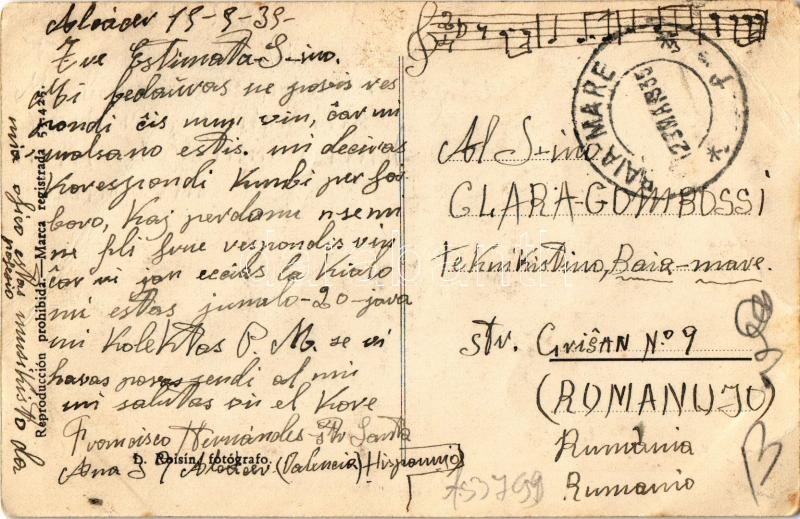 Alcácer 15-9-35-
Tre Estimata S-ino.
Mi bedaŭras ne povis res
pondi ĉis nun vin, ĉar mi
malsano estis. mi deciras
Korespondi Kun bi per for
boro, Kaj perdanu n-semi
ne pli frue respondis vin
ĉar vi jan ecias la Kialo
mi estas junulo-20-java
mi Kolektas P. M. se vi
havas povas sendi al mi
mi salutas vin el Kore
Francisco Hernándes str Santa
Ana Alcácer (Valencia) Hispanujo
mia ofico estas muzikisto da
D. Roisín, fotógrafo.
Reproducción prohibida. Marca registrada
BAIA MARE
Al S-ino
CLARA-GOMBOSSI
teknikistino, Baia-mare.
str. Criŝan Nº 9
(ROMANUJO)
Rumania
Rumanio
B
darabanth